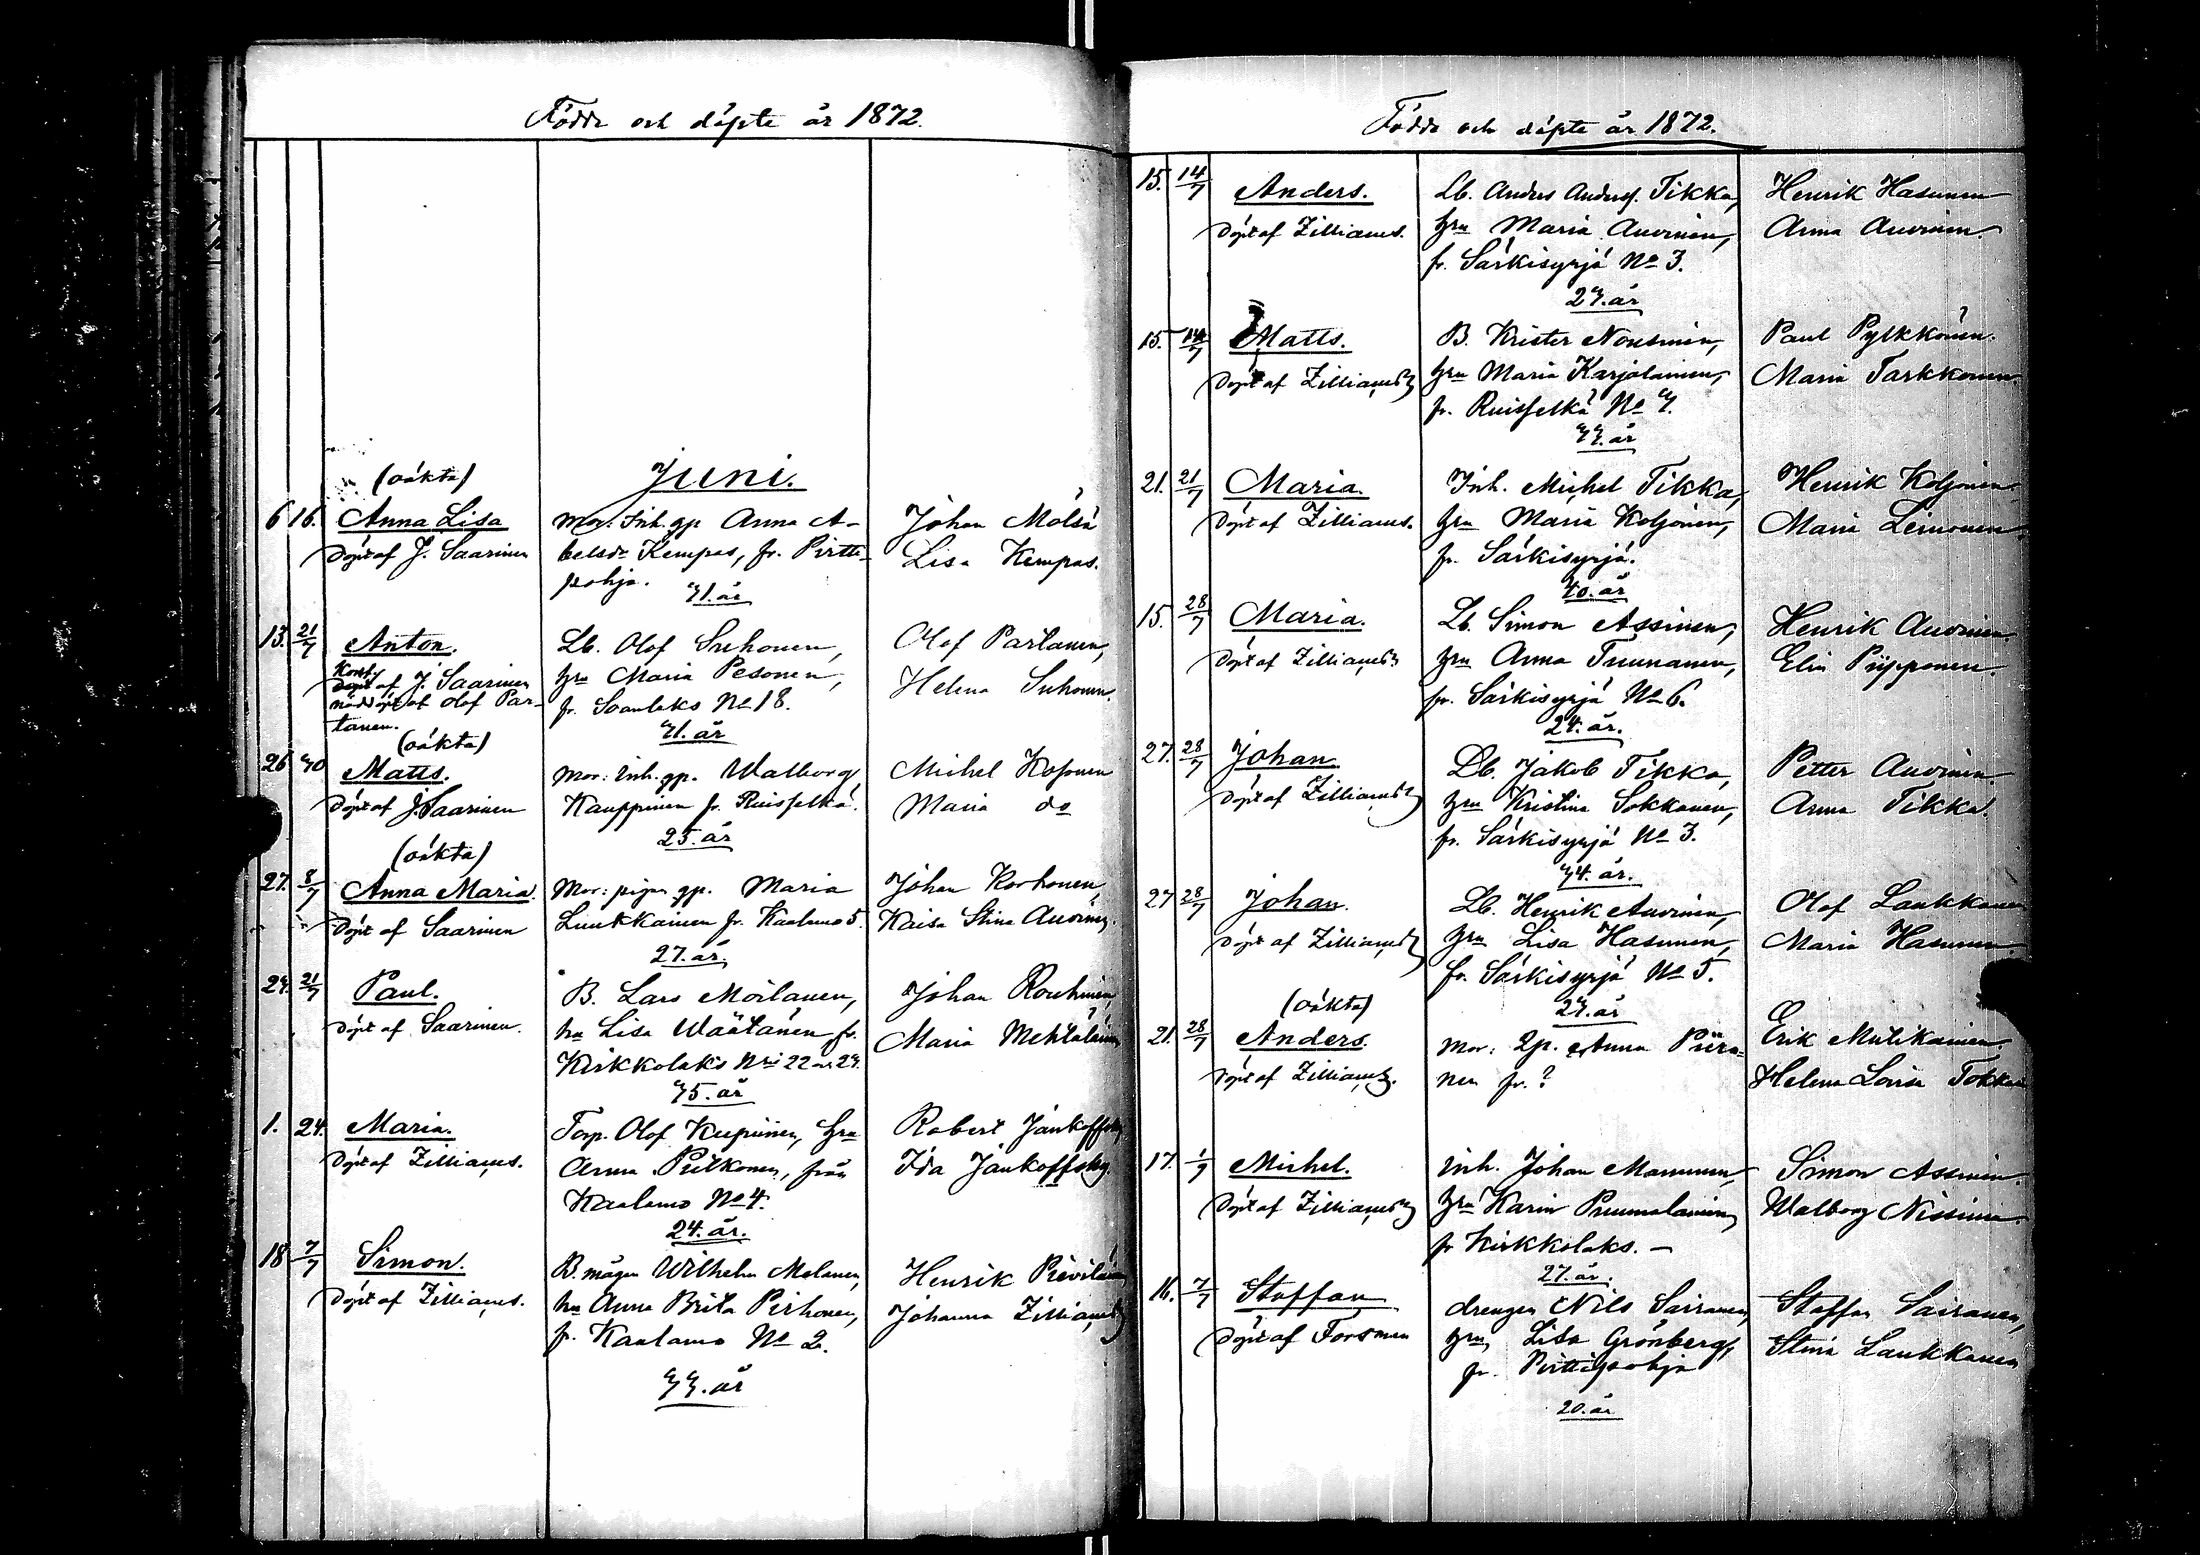 Födde och döpte år 1872.
Juni.
(oäkta)
6 16. Anna Lisa Mor: Inh. gp Anna A- Johan Mölsä
Döpt af J. Saarinen belsdr Kempas, fr. Pirtti- Lisa Kempas.
pohja. 31. år
13. 21/7 Anton. Lb. Olof Suhonen, Olof Partanen,
Döpt af J. Saarinen hru Maria Pesonen, Helena Suhonen.
nöddöpt af Olof Par- fr. Soanlaks No 18.
tanen. 31. år
(oäkta)
26 30 Matts. Mor: Inh. gp. Walborg Michel Koponen
Döpt af J. Saarinen Kauppinen fr. Ruisselkä. Maria do
25. år
(oäkta)
27. 8/7 Anna Maria. Mor: pigan gp. Maria Johan Korhonen
Döpt af Saarinen Luukkainen fr. Kaalamo 5. Kaisa Stina Auvinen.
27. år.
21/7 Paul. B. Lars Moilanen, Johan Rouhinen
Döpt af Saarinen. hu Lisa Wäätänen fr. Maria
Kirkkolaks Nri 22
35. år
1. 24. Maria. Torp. Olof Kupiinen, hru Robert Jankoffsky
Döpt af Zilliacus. Anna Pulkonen, från Ida Jankoffsky.
Kaalamo No 4.
24. år.
18 7/7 Simon. B. mågen Wilhelm Melanen, Henrik
Döpt af Zilliacus. hu Anna Brita Pirhonen, Johanna
fr. Kaalamo No 2.
33. år
Födde och döpte år 1872.
15. 14/7 Anders. Lb. Anders Anderss. Tikka, Henrik Hasunen
Döpt af Zilliacus. hru Maria Auvinen, Anna Auvinen.
fr. Särkisyrjä No 3.
23. år
15. 14/7 Matts. B. Krister Nousiainen, Paul Pylkkönen.
Döpt af Zilliacus hru Maria Karjalainen, Maria Tarkkonen.
fr. Ruisselkä No 3.
33. år
21. 21/7 Maria. Inh. Michel Tikka, Henrik Koljonen.
Döpt af Zilliacus. hru Maria Koljonen, Maria Leinonen.
fr. Särkisyrjä.
30. år
15. 28/7 Maria. Lb. Simon Assinen, Henrik Auvinen.
Döpt af Zilliacus hru Anna Tuunanen, Elin Piipponen.
fr. Särkisyrjä No 6.
24. år.
27. 28/7 Johan Lb. Jakob Tikka, Petter Auvinen.
Döpt af Zilliacus hru Kristina Sokkanen, Anna Tikka.
fr. Särkisyrjä No 3.
34. år.
27 28/7 Johan. Lb. Henrik Auvinen, Olof Laukkanen
Döpt af Zilliacus hru Lisa Hasunen, Maria Hasunen
fr. Särkisyrjä No 5.
23. år
(oäkta)
21. 28/7 Anders. Mor: Qp. Anna Piiro- Erik Mutikainen.
Döpt af Zilliacus. nen fr. ? Helena Lovisa Tokkan
17. Michel. Inh. Johan Mononen, Simon Assinen.
Döpt af Zilliacus hru Karin Puumalainen, Walborg Nissinen.
fr Kirkkolaks. —
27. år.
16. 7/7 Staffan drengen Nils Sairanen, Staffan Sairanen,
Döpt af Forsman hru Lisa Grönberg, Stina Laukkanen
fr. Pirttipohja
20. år